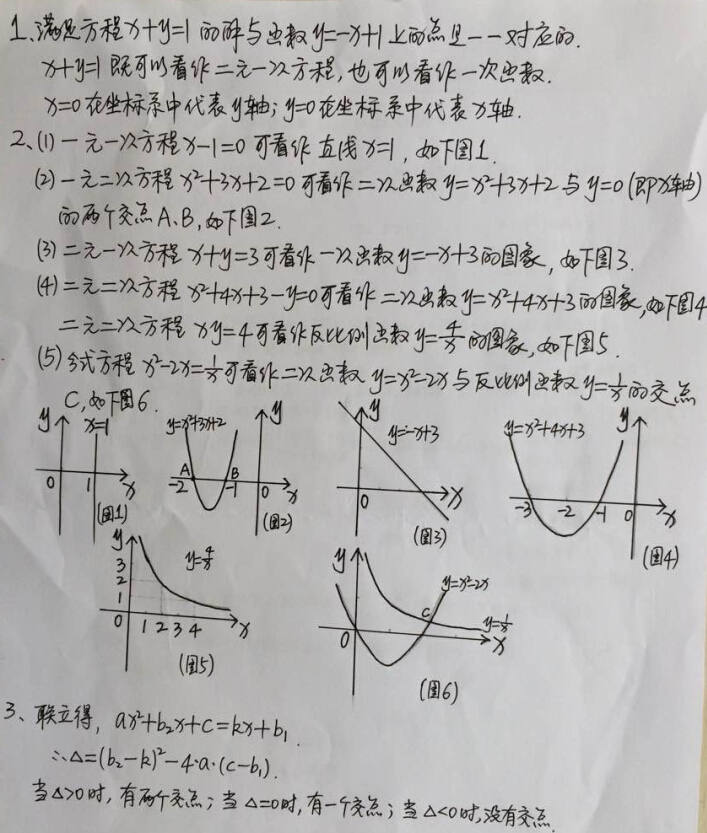 1、满足方程x+y=1 的解与函数y=-x+1 上的点是一一对应的.
x+y=1 既可以看作二元一次方程,也可以看作一次函数.
x=0在坐标系中代表y轴;y=0在坐标系中代表x轴.
2、(1)一元一次方程x-1=0可看作直线x=1,如下图1.
(2)一元二次方程x²+3x+2=0可看作二次函数y=x²+3x+2与y=0(即x轴)
的两个交点A、B,如下图2.
(3)二元一次方程x+y=3可看作一次函数y=-x+3的图象,如下图3.
(4)二元二次方程x²+4x+3-y=0可看作二次函数y=x²+4x+3的图象,如下图4
二元二次方程xy=4可看作反比例函数y=4/x的图象,如下图5.
(5)分式方程x²-2x=1/x可看作二次函数y=x²-2x与反比例函数y=1/x的交点
C,如下图6.
y x=1 0 1 x (图1)
y=x²+3x+2 y A B -2 -1 0 x (图2)
y y=-x+3 0 x (图3)
y=x²+4x+3 y -3 -2 -1 0 x (图4)
y 3 2 1 0 1 2 3 4 x y=4/x (图5)
y y=x²-2x C y=1/x 0 x (图6)
3、联立得, ax²+b₂x+c=kx+b₁.
∴△=(b₂-k)²-4·a·(c-b₁).
当△>0时,有两个交点;当△=0时,有一个交点;当△<0时,没有交点.